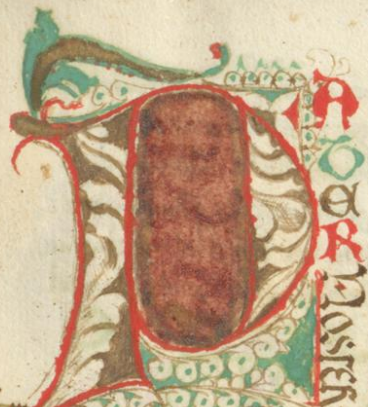 PATER
noster